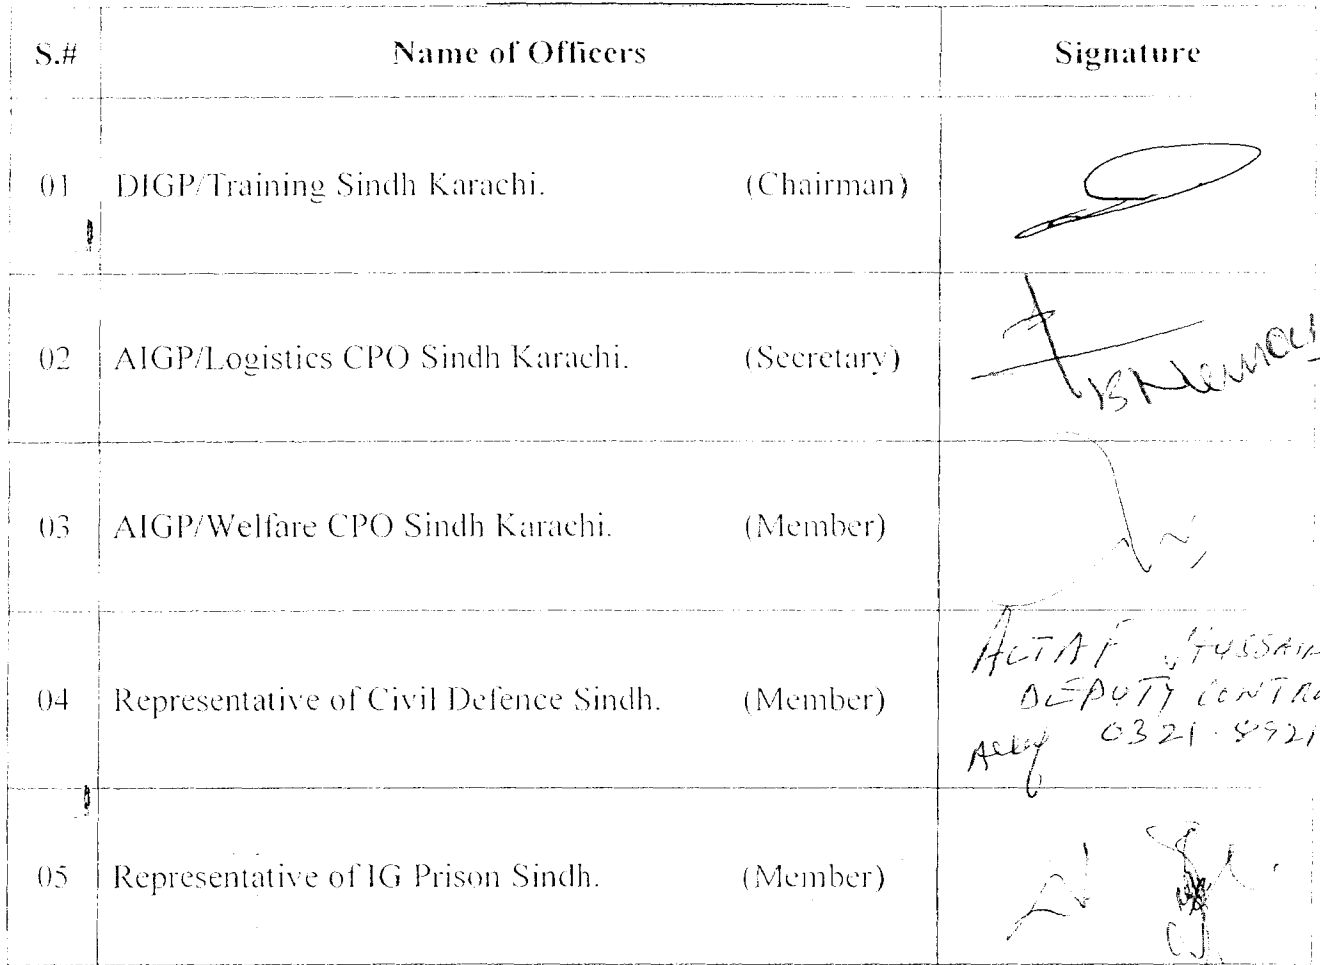 S.# Name of Officers Signature
01 DIGP/Training Sindh Karachi. (Chairman)
02 AIGP/Logistics CPO Sindh Karachi. (Secretary)
03 AIGP/Welfare CPO Sindh Karachi. (Member)
ALTAF HUSSAIN
04 Representative of Civil Defence Sindh. (Member) DEPUTY CONTRO
0321-8921
05 Representative of IG Prison Sindh. (Member)